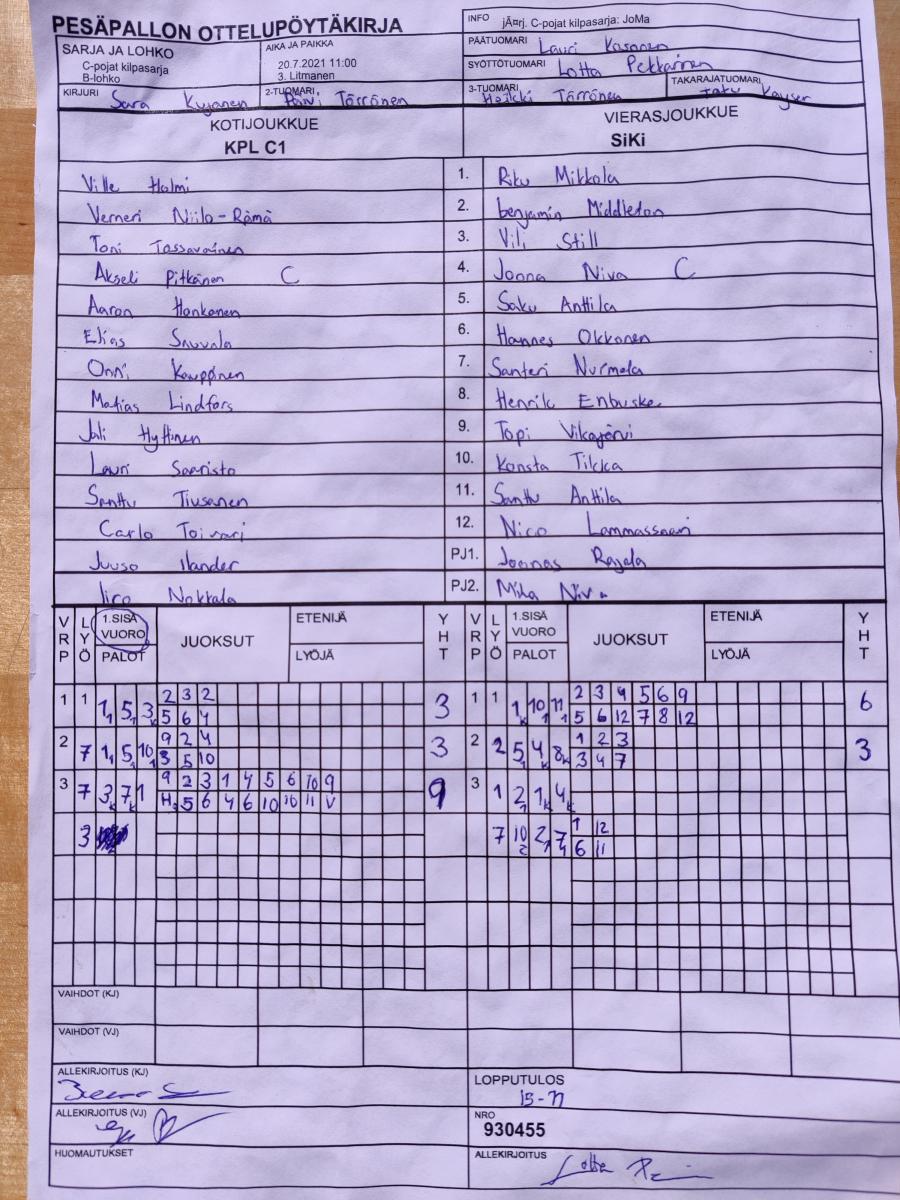 PESÄPALLON OTTELUPÖYTÄKIRJA
INFO jÃ¤rj. C-pojat kilpasarja: JoMa
SARJA JA LOHKO
C-pojat kilpasarja
B-lohko
AIKA JA PAIKKA
20.7.2021 11:00
3. Litmanen
PÄÄTUOMARI Lauri Kosonen
SYÖTTÖTUOMARI Lotta Pekkarinen
KIRJURI Sara
2-TUOMARI Päivi Törrönen
3-TUOMARI Heikki Törrönen
TAKARAJATUOMARI Kayser
KOTIJOUKKUE
KPL C1
VIERASJOUKKUE
SiKi
Ville Halmi 1. Riku Mikkola
Verneri Niilo-Rämä 2. benjamin Middleton
Toni Tossavainen 3. Vili Still
Akseli Pitkänen C 4. Joona Niva C
Aaron Honkanen 5. Saku Anttila
Elias Sauvala 6. Hannes Okkonen
Onni Kauppinen 7. Santeri Nurmela
Matias Lindfors 8. Henrik Enbuske
Jali Hyttinen 9. Topi Vikajärvi
Lauri Saaristo 10. Konsta Tikka
Santtu Tiusanen 11. Santtu Anttila
Carlo Toivari 12. Nico Lammassaari
Juuso Ilander PJ1. Joonas Rajala
Iiro Nokkala PJ2. Mika Niva
VRP LYÖ 1.SISÄ VUORO PALOT JUOKSUT ETENIJÄ LYÖJÄ YHT VRP LYÖ 1.SISÄ VUORO PALOT JUOKSUT ETENIJÄ LYÖJÄ YHT
1 1 1 1 5 1 3 K 2 3 2 3 1 1 1 K 10 1 11 1 2 3 4 5 6 9 6
5 6 4 5 6 12 7 8 12
2 7 1 1 5 1 10 1 9 2 4 3 2 2 5 1 4 K 8 K 1 2 3 3
3 5 10 3 4 7
3 7 3 K 7 K 1 9 2 3 1 4 5 6 10 9 9 3 1 2 1 1 K 4 K
H 5 6 4 6 10 10 11 V
3 7 10 2 2 1 7 1 1 12
6 11
VAIHDOT (KJ)
VAIHDOT (VJ)
ALLEKIRJOITUS (KJ)
LOPPUTULOS
15-11
ALLEKIRJOITUS (VJ)
NRO
930455
HUOMAUTUKSET
ALLEKIRJOITUS